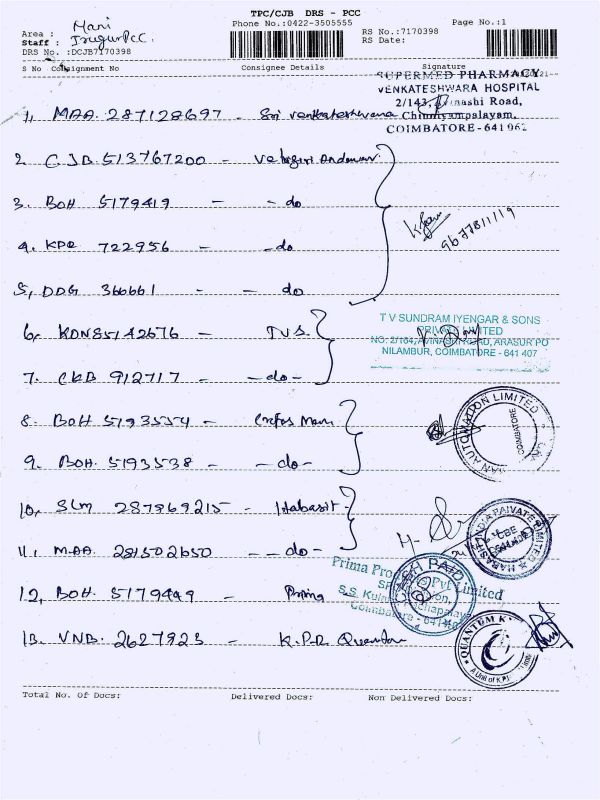 TPC/CJB DRS - PCC
Phone No.:0422-3505555
Page No.:1
Area : Mani
Staff : Irugur Pcc.
DRS No :DCJB7170398
RS No.:7170398
RS Date:
S No Consignment No Consignee Details Signature
SUPERMED PHARMACY
VENKATESHWARA HOSPITAL
2/143, Avinashi Road,
Chinniyampalayam,
COIMBATORE - 641 062
1, MAA. 287128697 - Sri Venkateshwara
2. CJB. 513767200 -
3. BOH 5179419 - - do
4. KPQ 722956 - - do
9677811119
5, DDG 366661 - - do
T V SUNDRAM IYENGAR & SONS
PRIVATE LIMITED
NO. 2/164, AVINASHI ROAD, ARASUR PO
NILAMBUR, COIMBATORE - 641 407
6, KDN85142676 - TVS.
7. CKB 912717 - - do -
AUTOMATION LIMITED
COIMBATORE
8. BOH 5193554 -
9. BOH. 5193538 - - do -
10, SLM 287969215 - Habasit -
11, MAA. 281502650 - - do -
HABASIT INDIA PRIVATE LIMITED
CBE
Prima Pvt Limited
CASH PAID
Coimbatore - 641
12, BOH. 5179499 - Prima
13. VNB. 2627923 - K.P.R Quantum
QUANTUM K
A Unit of K.P.
Total No. Of Docs: Delivered Docs: Non Delivered Docs: